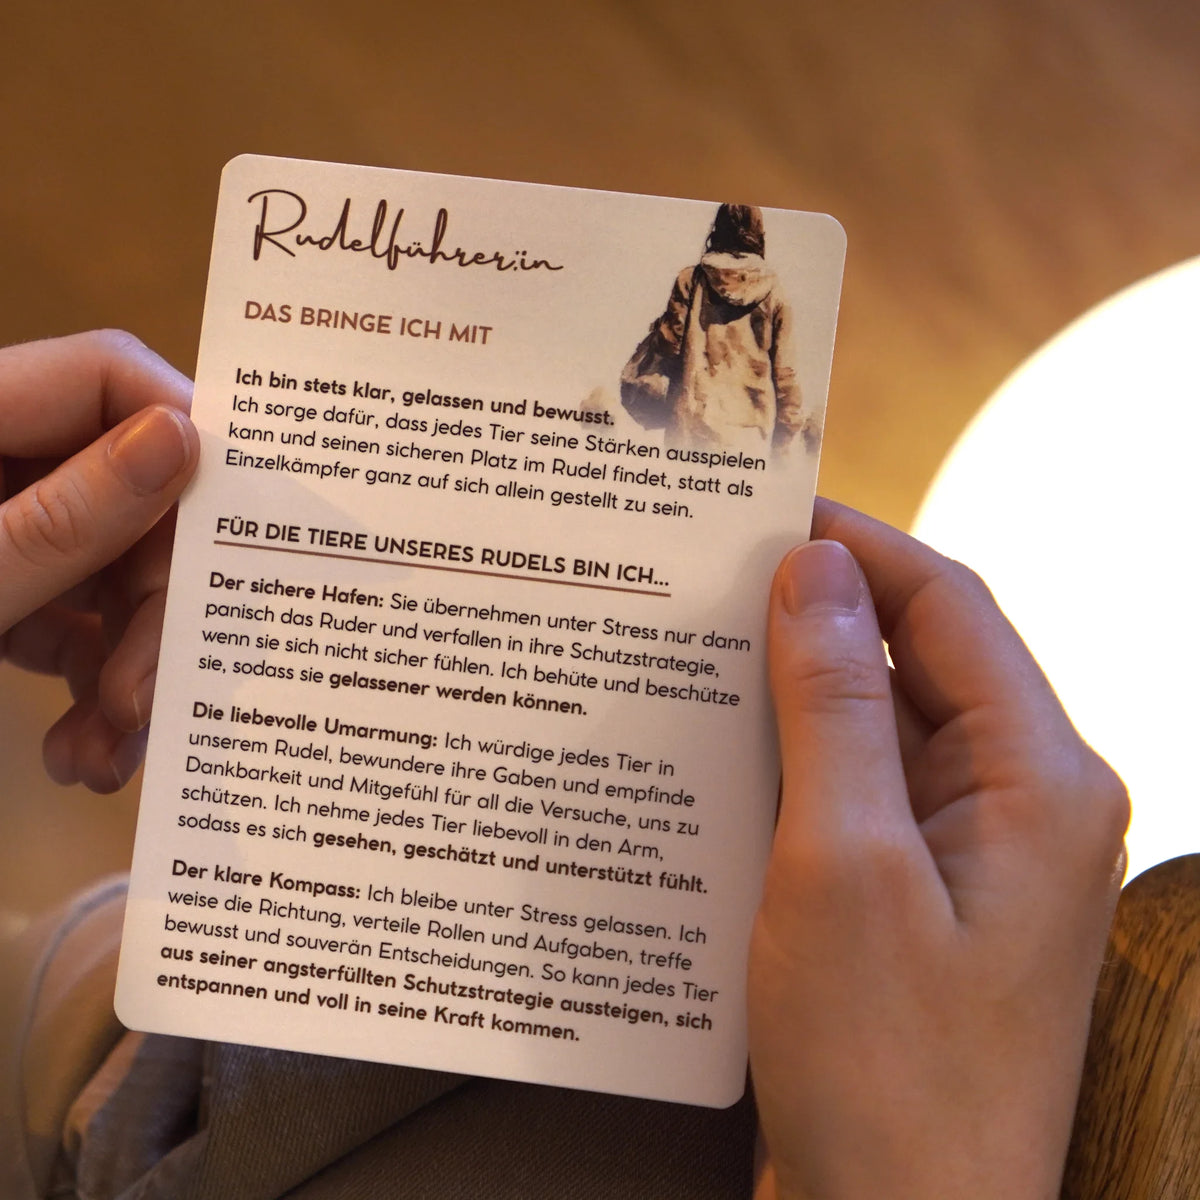 Rudelführer:in
DAS BRINGE ICH MIT
Ich bin stets klar, gelassen und bewusst.
Ich sorge dafür, dass jedes Tier seine Stärken ausspielen
kann und seinen sicheren Platz im Rudel findet, statt als
Einzelkämpfer ganz auf sich allein gestellt zu sein.
FÜR DIE TIERE UNSERES RUDELS BIN ICH...
Der sichere Hafen: Sie übernehmen unter Stress nur dann
panisch das Ruder und verfallen in ihre Schutzstrategie,
wenn sie sich nicht sicher fühlen. Ich behüte und beschütze
sie, sodass sie gelassener werden können.
Die liebevolle Umarmung: Ich würdige jedes Tier in
unserem Rudel, bewundere ihre Gaben und empfinde
Dankbarkeit und Mitgefühl für all die Versuche, uns zu
schützen. Ich nehme jedes Tier liebevoll in den Arm,
sodass es sich gesehen, geschätzt und unterstützt fühlt.
Der klare Kompass: Ich bleibe unter Stress gelassen. Ich
weise die Richtung, verteile Rollen und Aufgaben, treffe
bewusst und souverän Entscheidungen. So kann jedes Tier
aus seiner angsterfüllten Schutzstrategie aussteigen, sich
entspannen und voll in seine Kraft kommen.